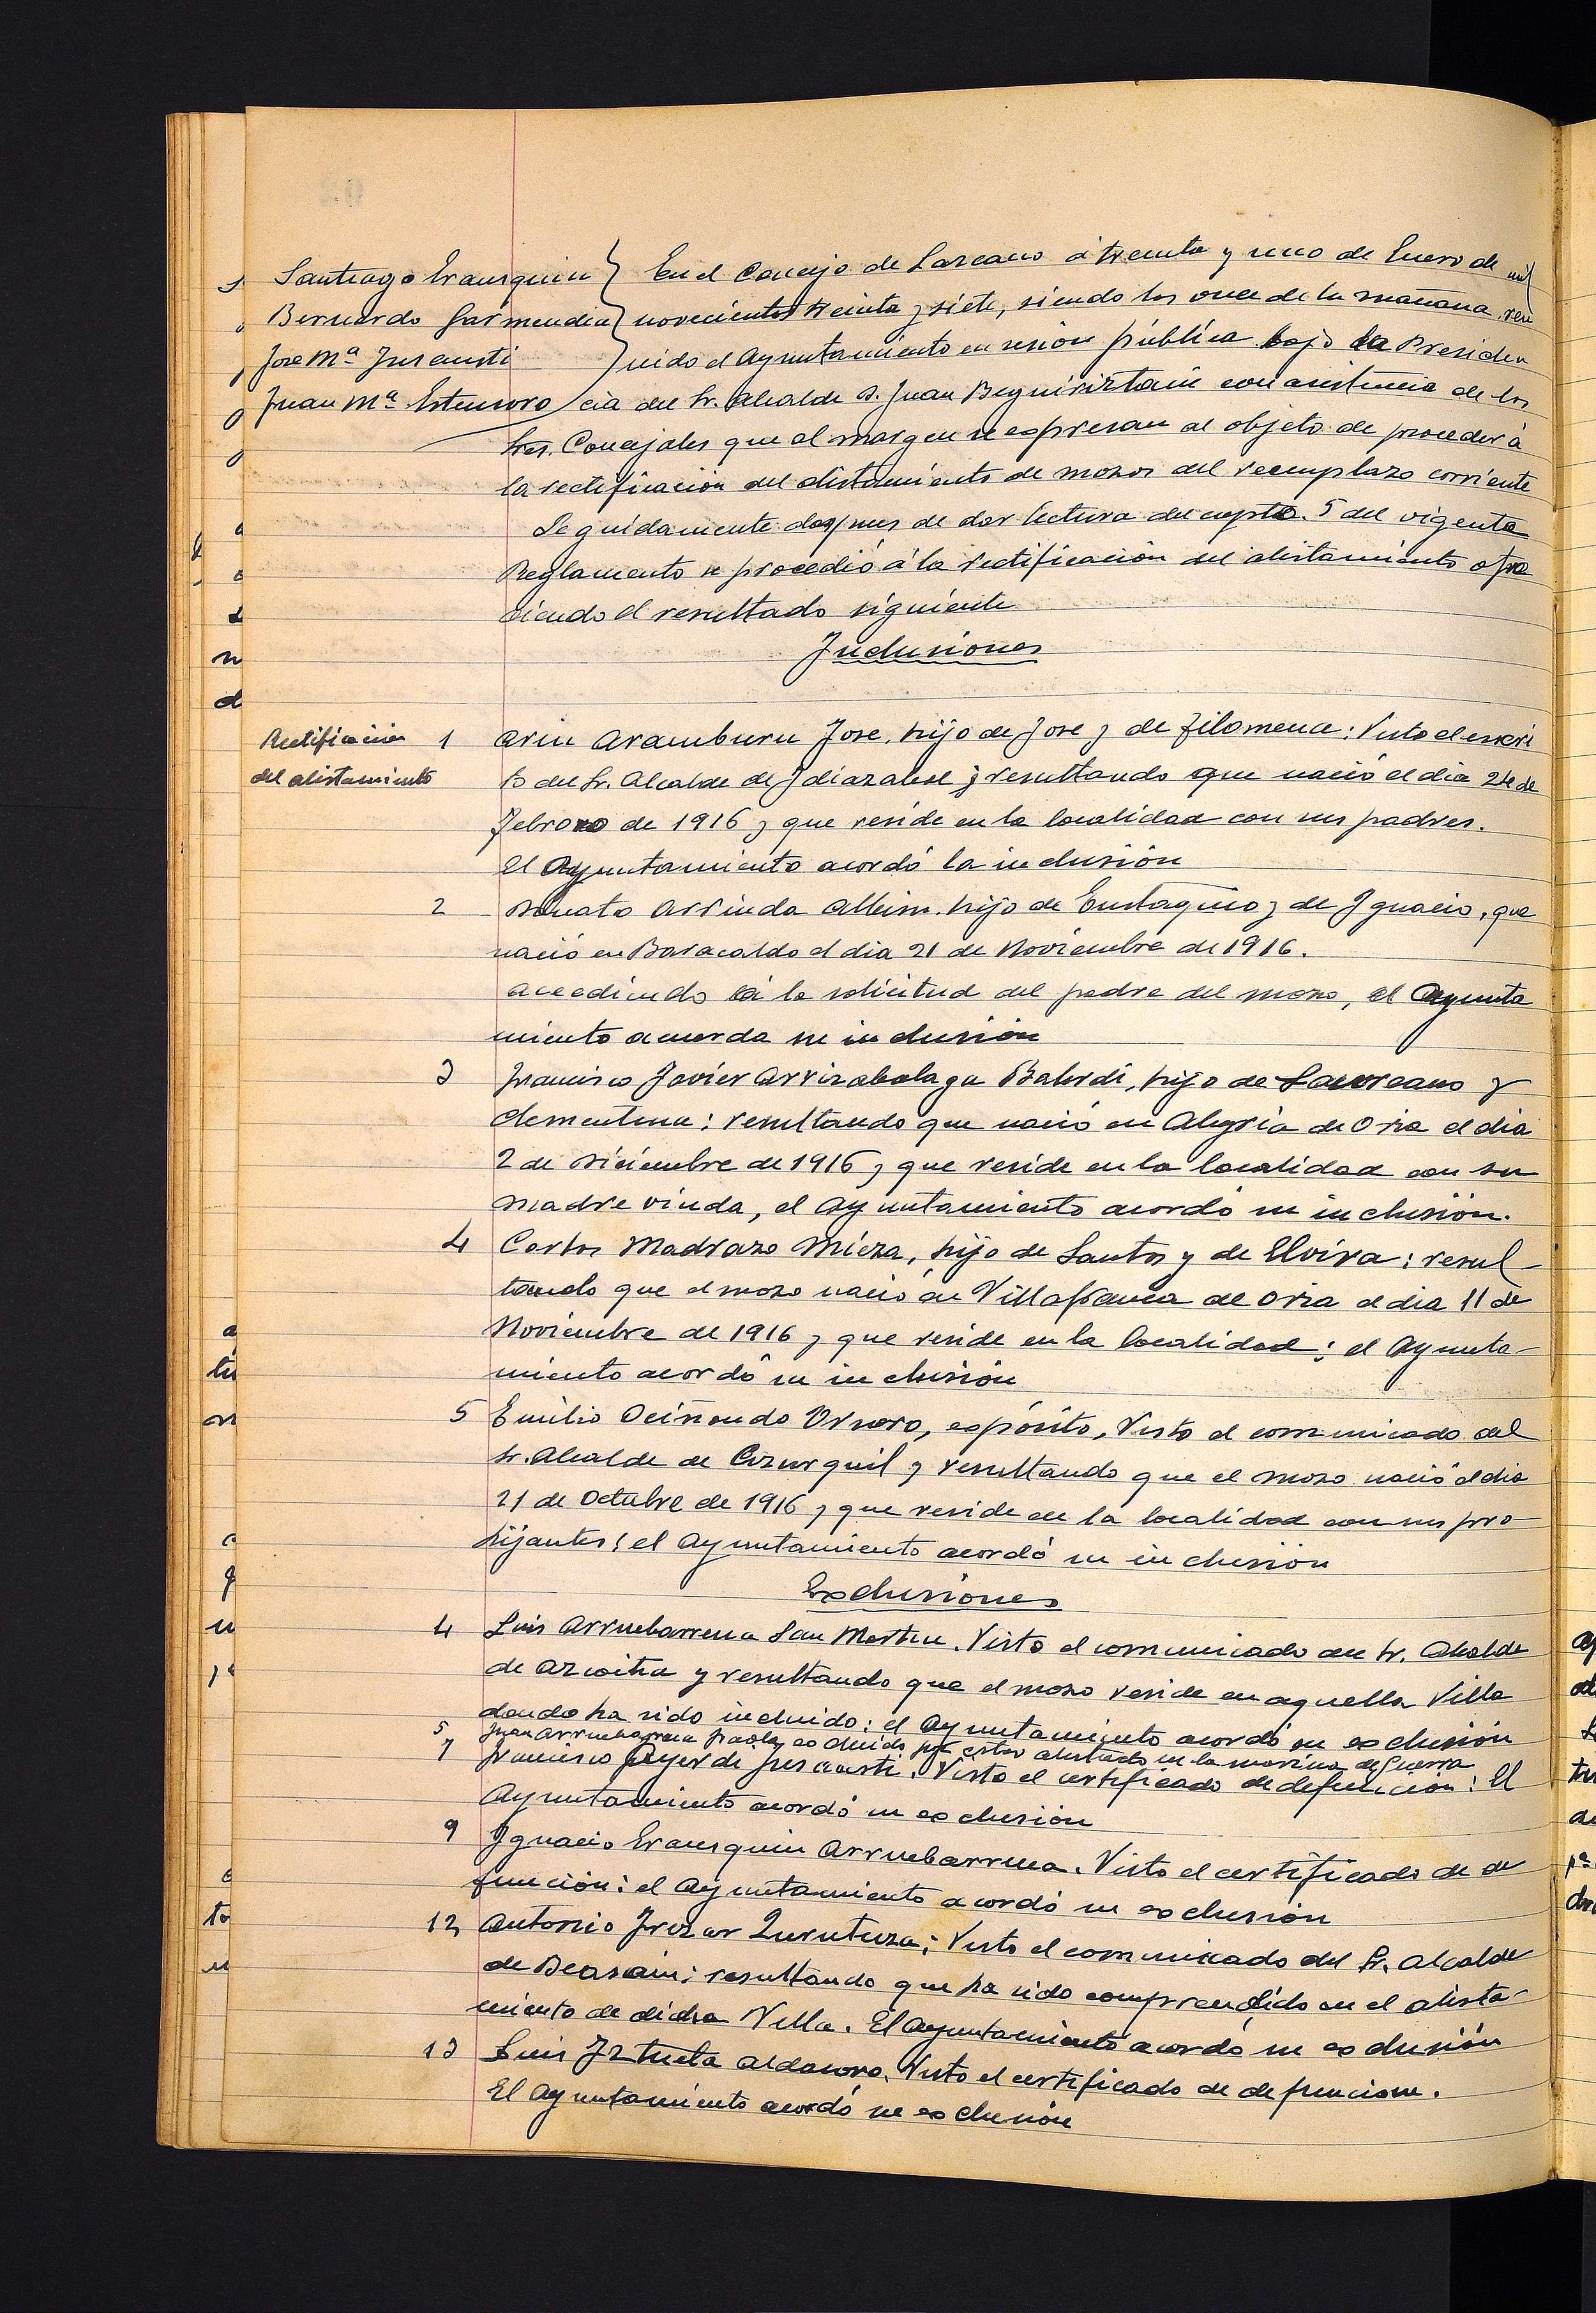 Santiago Erausquin
Bernardo Garmendia
Jose Mª Insausti
Juan Mª Estensoro
En el Concejo de Lazcano á treinta y uno de Enero de mil
novecientos treinta y siete, siendo las once de la mañana, reu
nido el Ayuntamiento en sesión pública bajo la Presiden
cia del Sr. Alcalde D. Juan Beguiristain con asistencia de los
Sres. Concejales que al margen se expresan al objeto de proceder á
la rectificación del alistamiento de mozos del reemplazo corriente
Seguidamente despues de dar lectura del capto. 5 del vigente
Reglamento se procedió á la rectificación del alistamiento ofre
ciendo el resultado siguiente
Inclusiones
Rectificación
del alistamiento
1 Arin Aramburu Jose, hijo de Jose y de Filomena: Visto el escri
to del Sr. Alcalde de Idiazabal y resultando que nació el dia 24 de
Febrero de 1916 y que reside en la localidad con sus padres.
El Ayuntamiento acordó la inclusión
2 Donato Arrinda Albisu. hijo de Eustaquio y de Ignacia, que
nació en Baracaldo el dia 21 de Noviembre de 1916.
accediendo á la solicitud del padre del mozo, el Ayunta
miento acuerda su inclusión
3 Francisco Javier Arrizabalaga Balerdi, hijo de Laureano y
Clementina: resultando que nació en Alegria de Oria el dia
2 de Diciembre de 1916 y que reside en la localidad con su
madre viuda, el Ayuntamiento acordó su inclusión.
4 Carlos Madrazo Mieza, hijo de Santos y de Elvira: resul
tando que el mozo nació en Villafranca de Oria el dia 11 de
Noviembre de 1916 y que reside en la localidad: el Ayunta-
miento acordó su inclusión
5 Emilio Ociñondo Ornoro, expósito, Visto el comunicado del
Sr. Alcalde de Cizurquil y resultando que el mozo nació el dia
21 de Octubre de 1916 y que reside en la localidad con sus pro-
hijantes: el Ayuntamiento acordó su inclusión
Exclusiones
4 Luis Arruebarrena San Martin. Visto el comunicado del Sr. Alcalde
de Azcoitia y resultando que el mozo reside en aquella Villa
donde ha sido incluido: el Ayuntamiento acordó su exclusión
5 Juan Arruebarrena excluido por estar alistado en la marina de Guerra
7 Francisco Ayerdi Insausti. Visto el certificado de defunción: El
Ayuntamiento acordó su exclusión
9 Ignacio Erausquin Arruebarrena. Visto el certificado de de
función: el Ayuntamiento acordó su exclusión
12 Antonio Irizar Zurutuza: Visto el comunicado del Sr. Alcalde
de Beasain: resultando que ha sido comprendido en el alista-
miento de dicha Villa. El Ayuntamiento acordó su exclusión
13 Luis Iztueta Aldasoro. Visto el certificado de defuncion.
El Ayuntamiento acordó su exclusión